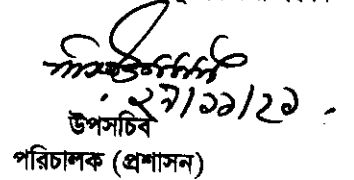 ২৯/১১/২১
উপসচিব
পরিচালক (প্রশাসন)